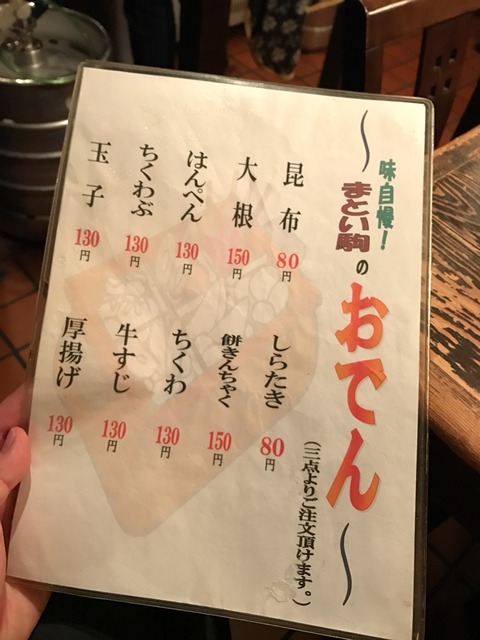 味自慢！
まとい駒のおでん
（三点よりご注文頂けます。）
昆布 80円
大根 150円
はんぺん 130円
ちくわぶ 130円
玉子 130円
しらたき 80円
餅きんちゃく 150円
ちくわ 130円
牛すじ 130円
厚揚げ 130円